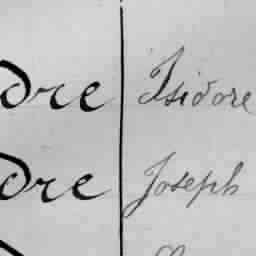 dre Isidore
dre Joseph